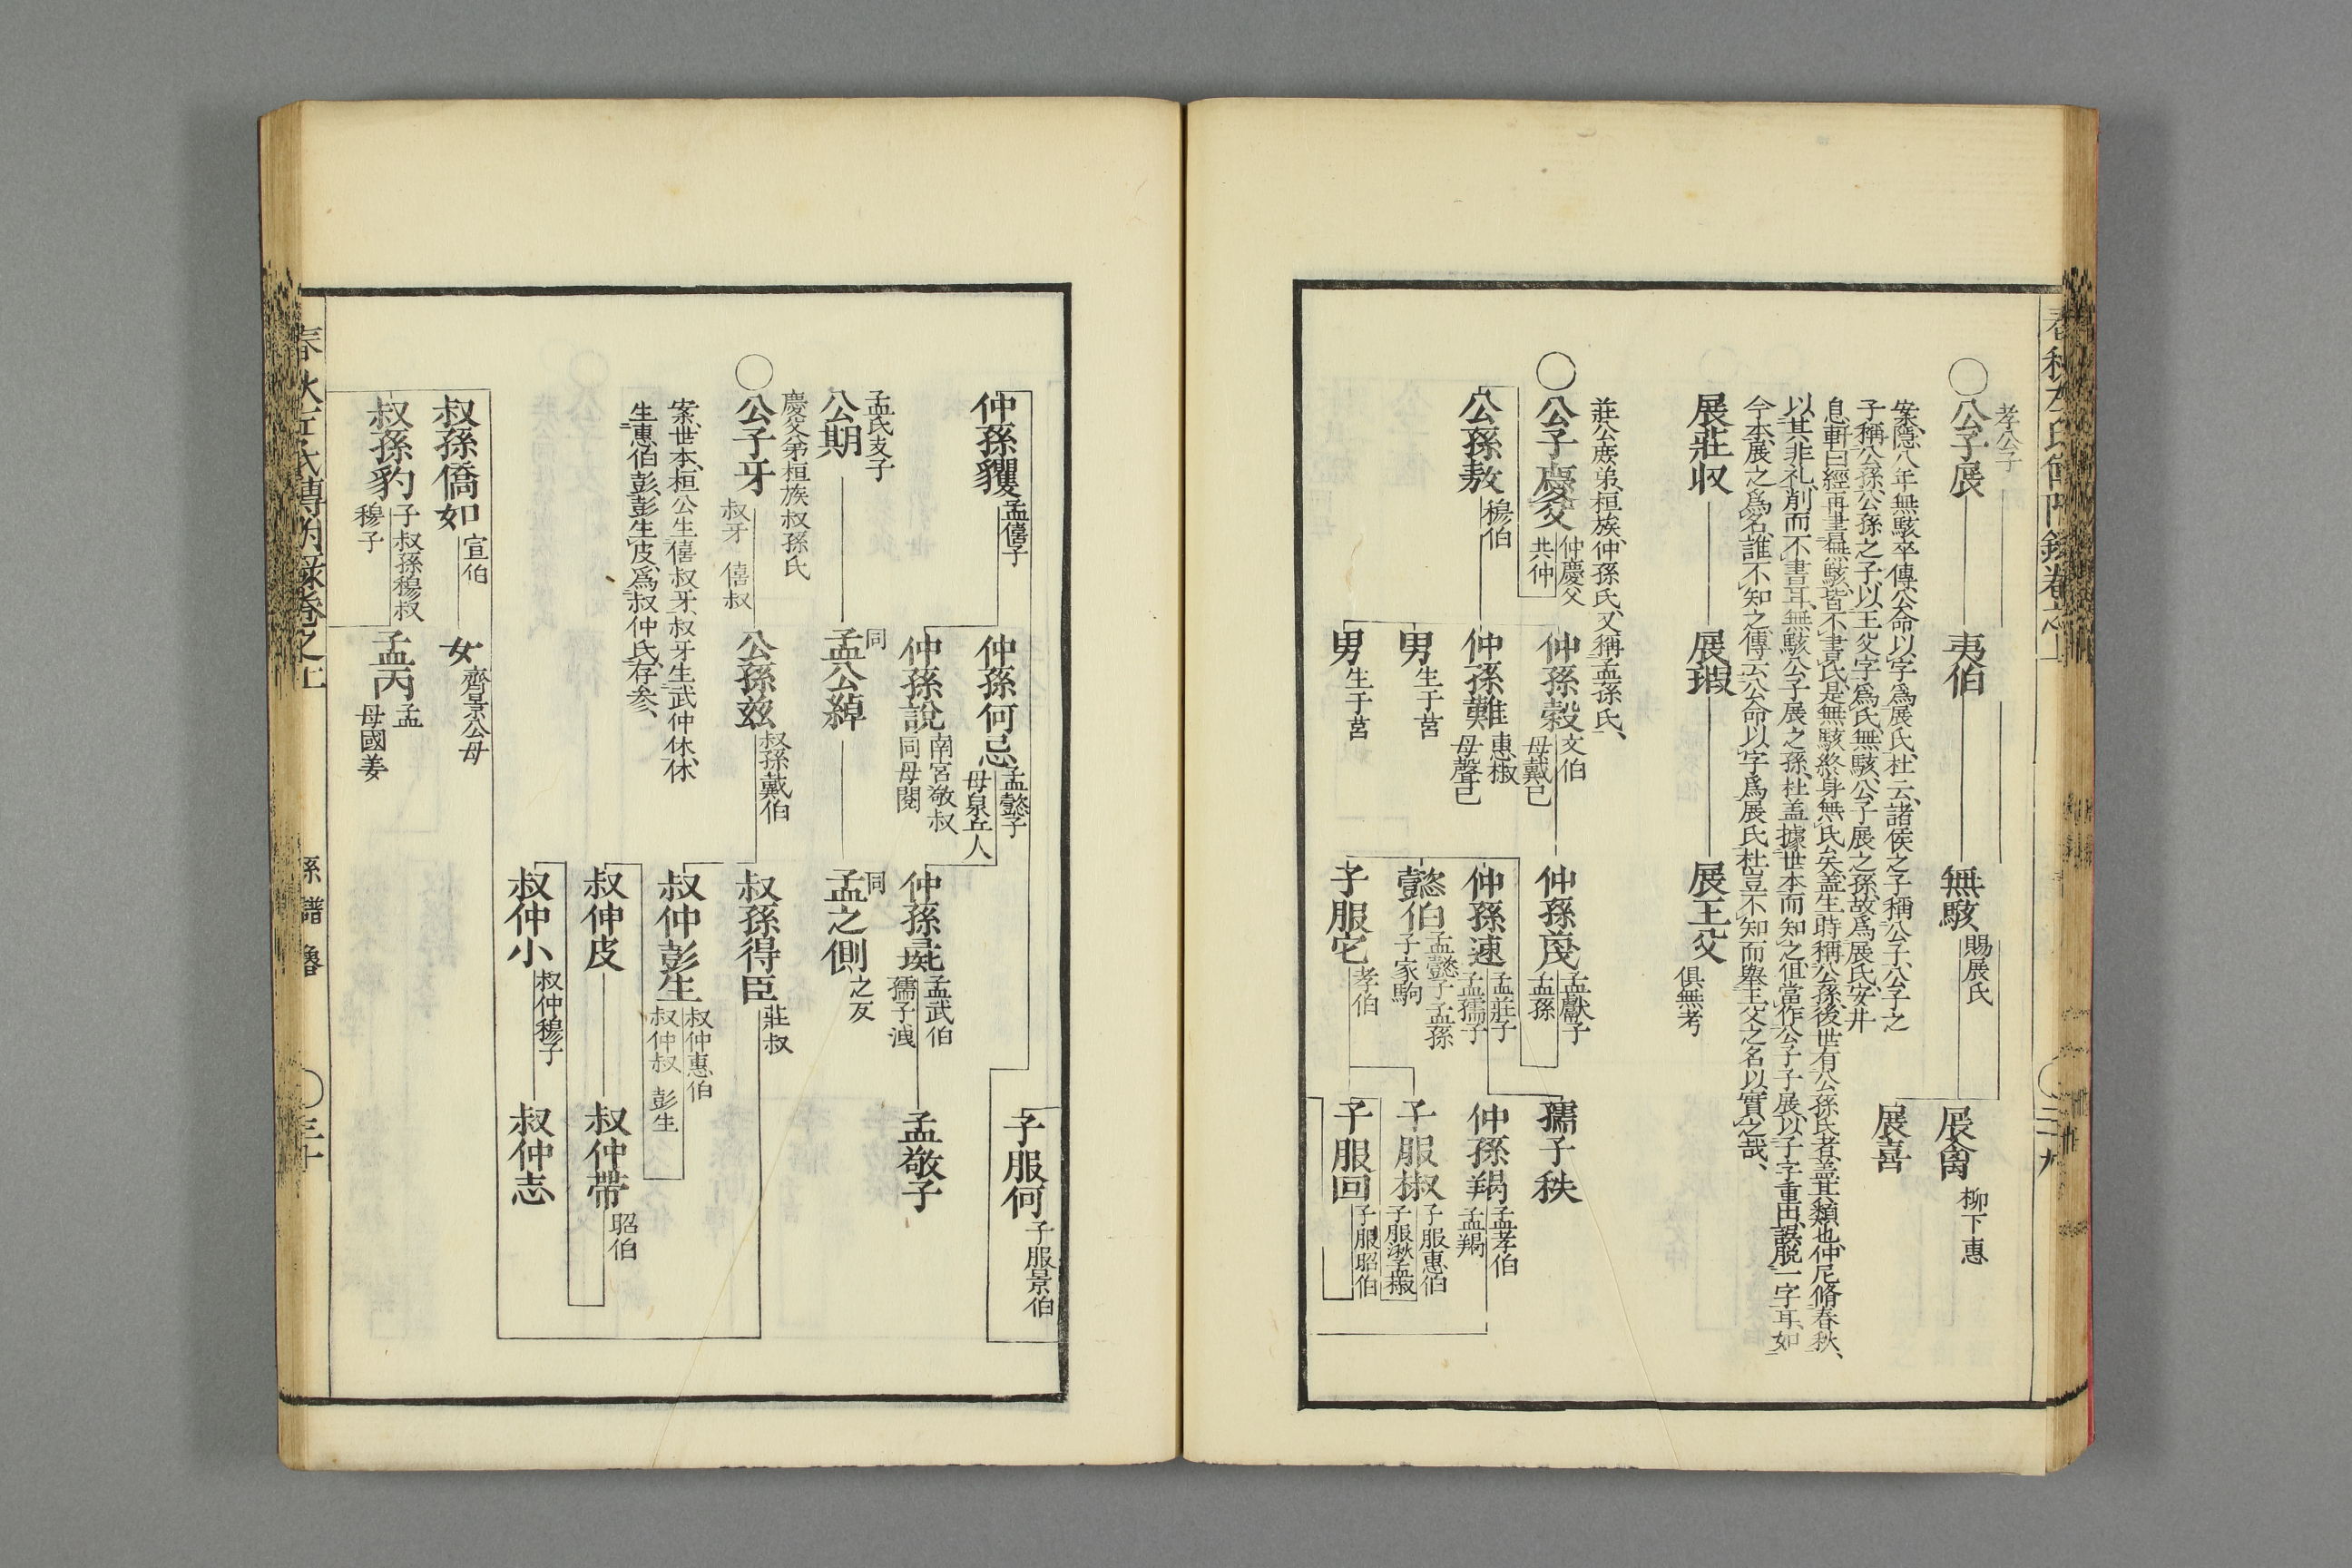 孝公子
公子展
夷伯
無駭
賜展氏
展禽
柳下惠
展喜
案隱八年無駭卒傳公命以字爲展氏杜云諸侯之子稱公子公子之
子稱公孫公孫之子以王父字爲氏無駭公子展之孫故爲展氏安井
息軒曰經再書無駭皆不書氏是無駭終身無氏矣蓋生時稱公孫後世有公孫氏者蓋其類也仲尼脩春秋、
以其非礼削而不書耳無駭公子展之孫杜盖據世本而知之但當作公子子展以子字重出誤脫一字耳如
今本展之爲名誰不知之傳云公命以字爲展氏杜豈不知而舉王父之名以實之哉、
展莊収
展瑕
展王父
俱無考
莊公庶弟桓族仲孫氏又稱孟孫氏、
公子慶父
仲慶父
共仲
公孫敖
穆伯
仲孫穀
文伯
母戴己
仲孫難
惠椒
母聲己
男
生于莒
男
生于莒
仲孫蔑
孟獻子
孟孫
仲孫速
孟莊子
孟孺子
懿伯
孟懿子孟孫
子家駒
子服它
孝伯
孺子秩
仲孫羯
孟孝伯
孟羯
子服椒
子服惠伯
子服湫孟椒
子服回
子服昭伯
仲孫貜
孟僖子
仲孫何忌
孟懿子
母泉丘人
仲孫說
南宮敬叔
同母閱
仲孫彘
孟武伯
孺子洩
子服何
子服景伯
孟敬子
孟氏支子
公期
同
孟公綽
同
孟之側
之反
慶父弟桓族叔孫氏
公子牙
叔牙　僖叔
公孫玆
叔孫戴伯
叔孫得臣
莊叔
案世本桓公生僖叔牙叔牙生武仲休休
生惠伯彭彭生皮爲叔仲氏存参、
叔仲彭生
叔仲惠伯
叔仲叔　彭生
叔仲皮
叔仲帶
昭伯
叔仲小
叔仲穆子
叔仲志
叔孫僑如
宣伯
女
齊景公母
叔孫豹
子叔孫穆叔
穆子
孟丙
孟
母國姜
系譜　魯
三十